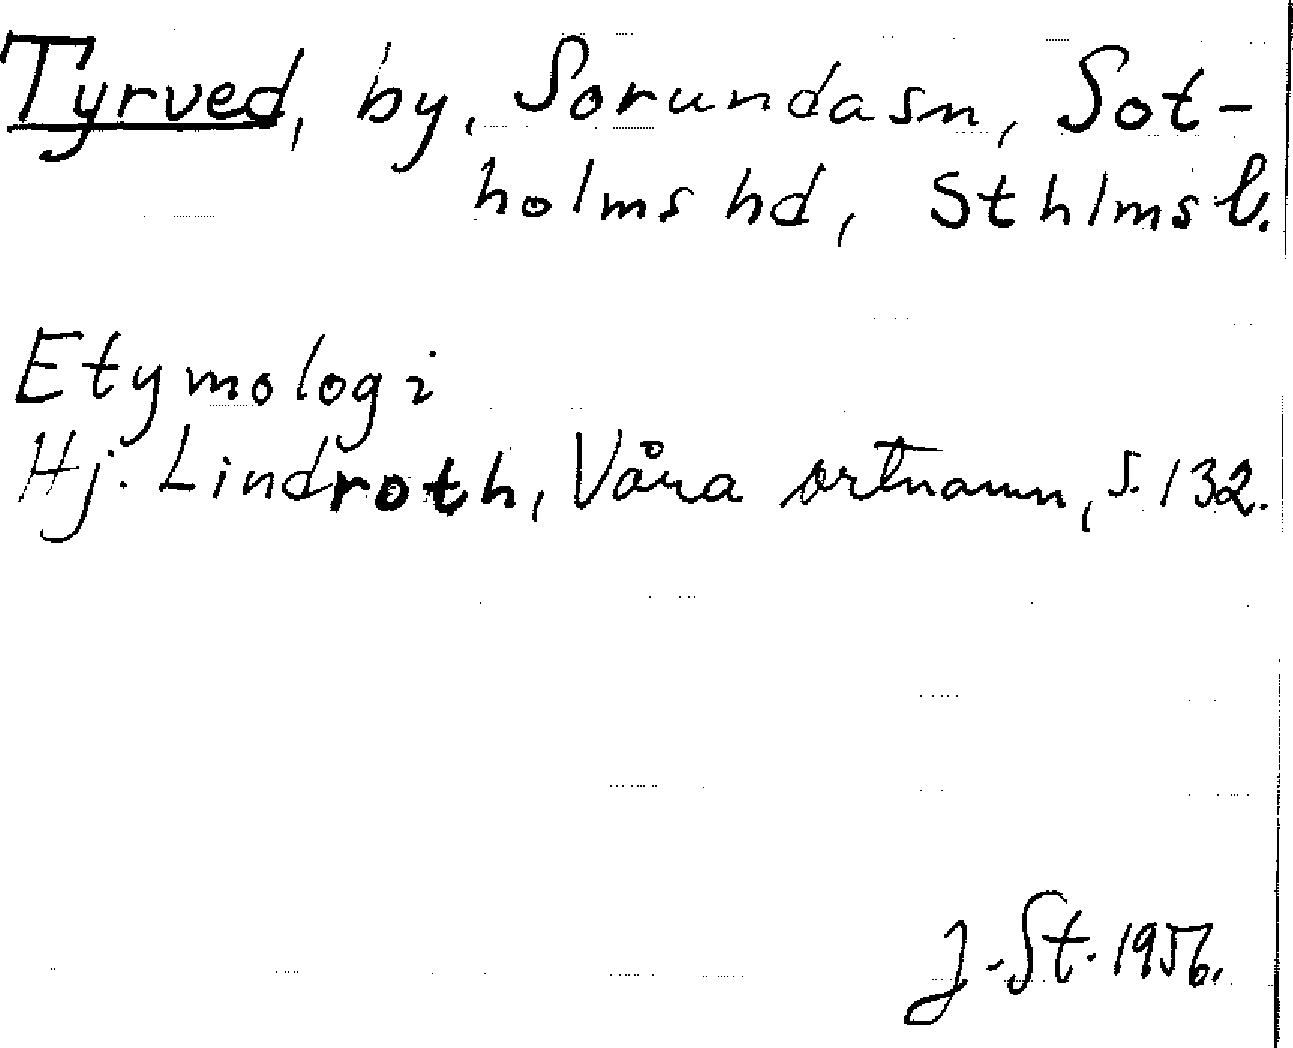 Tyrved, by, Sorunda sn, Sot-
holms hd, Sthlms l.
Etymologi
Hj. Lindroth, Våra ortnamn, s. 132.
J. St. 1956.